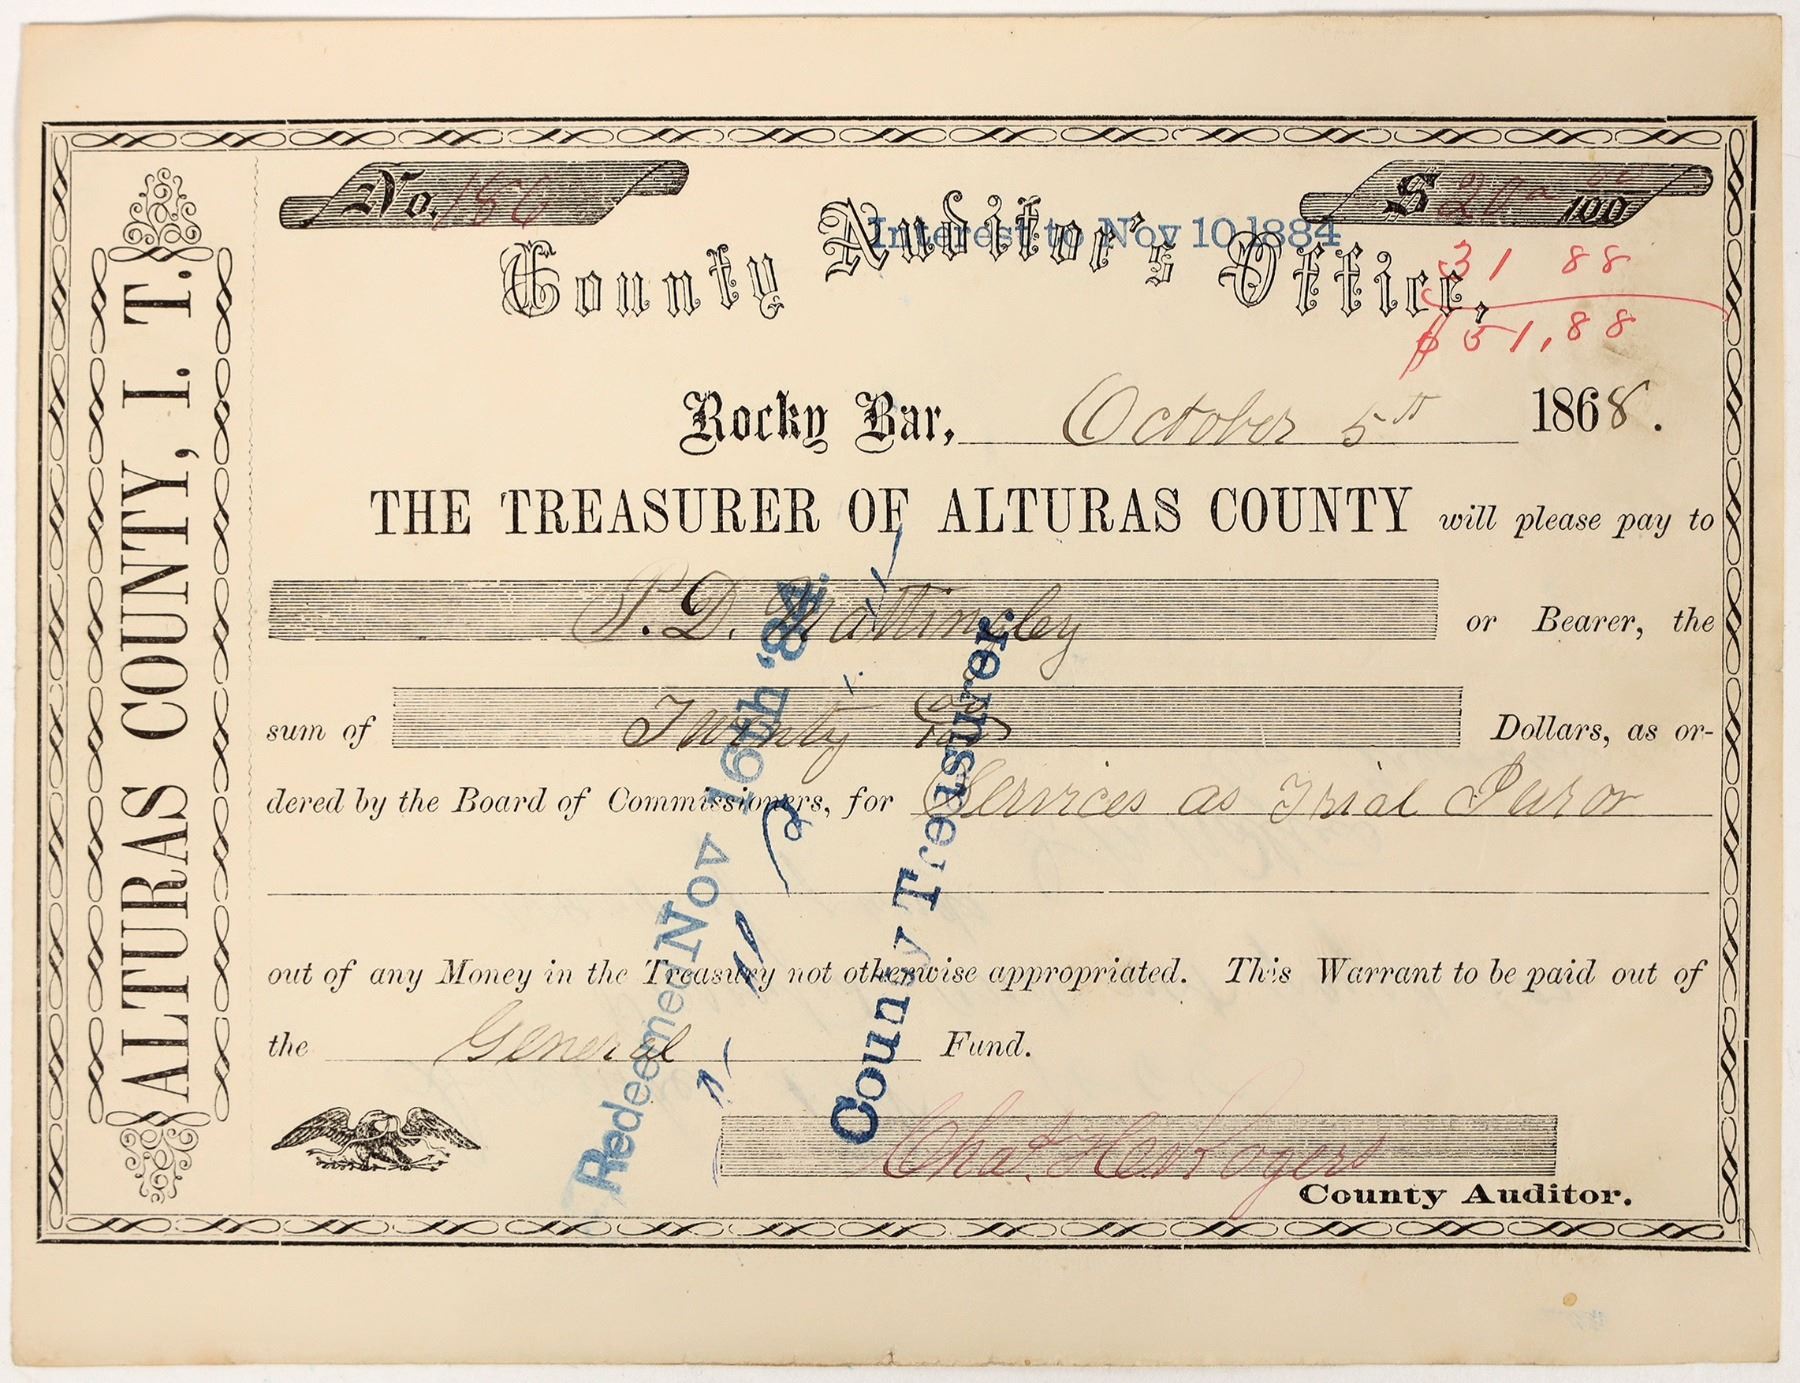 ALTURAS COUNTY, I. T.
No. 186
$ 20 00/100
Interest to Nov 10 1884
County Auditor's Office,
31 88
$51,88
Rocky Bar, October 5th 1868.
THE TREASURER OF ALTURAS COUNTY will please pay to
P. D. Mattingley or Bearer, the
sum of Twenty 00/100 Dollars, as or-
dered by the Board of Commissioners, for Services as Trial Juror
out of any Money in the Treasury not otherwise appropriated. This Warrant to be paid out of
the General Fund.
Redeemed Nov 16th '84.
County Treasurer.
Chas. Rogers
County Auditor.